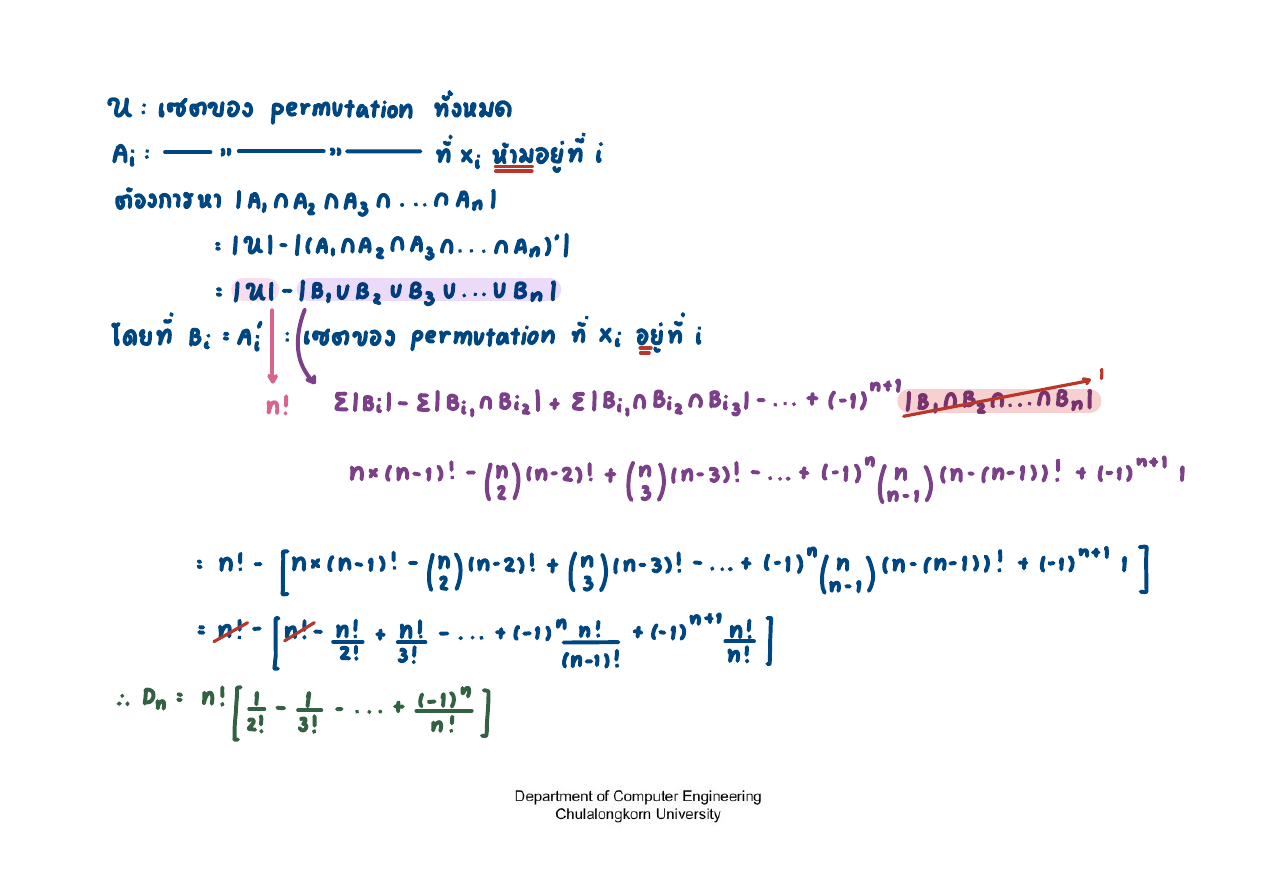 𝒰 : เซตของ permutation ทั้งหมด
Aᵢ : —— " ———— " ———— ที่ xᵢ ห้ามอยู่ที่ i
ต้องการหา |A₁ ∩ A₂ ∩ A₃ ∩ ... ∩ Aₙ|
= |𝒰| - |(A₁ ∩ A₂ ∩ A₃ ∩ ... ∩ Aₙ)'|
= |𝒰| - |B₁ ∪ B₂ ∪ B₃ ∪ ... ∪ Bₙ|
โดยที่ Bᵢ = Aᵢ' : เซตของ permutation ที่ xᵢ อยู่ที่ i
n! Σ|Bᵢ| - Σ|Bᵢ₁ ∩ Bᵢ₂| + Σ|Bᵢ₁ ∩ Bᵢ₂ ∩ Bᵢ₃| - ... + (-1)ⁿ⁺¹ |B₁ ∩ B₂ ∩ ... ∩ Bₙ| 1
n × (n-1)! - (n 2)(n-2)! + (n 3)(n-3)! - ... + (-1)ⁿ (n n-1)(n-(n-1))! + (-1)ⁿ⁺¹ 1
= n! - [n × (n-1)! - (n 2)(n-2)! + (n 3)(n-3)! - ... + (-1)ⁿ (n n-1)(n-(n-1))! + (-1)ⁿ⁺¹ 1]
= n! - [n! - n!/2! + n!/3! - ... + (-1)ⁿ n!/(n-1)! + (-1)ⁿ⁺¹ n!/n!]
∴ Dₙ = n! [1/2! - 1/3! - ... + (-1)ⁿ/n!]
Department of Computer Engineering
Chulalongkorn University